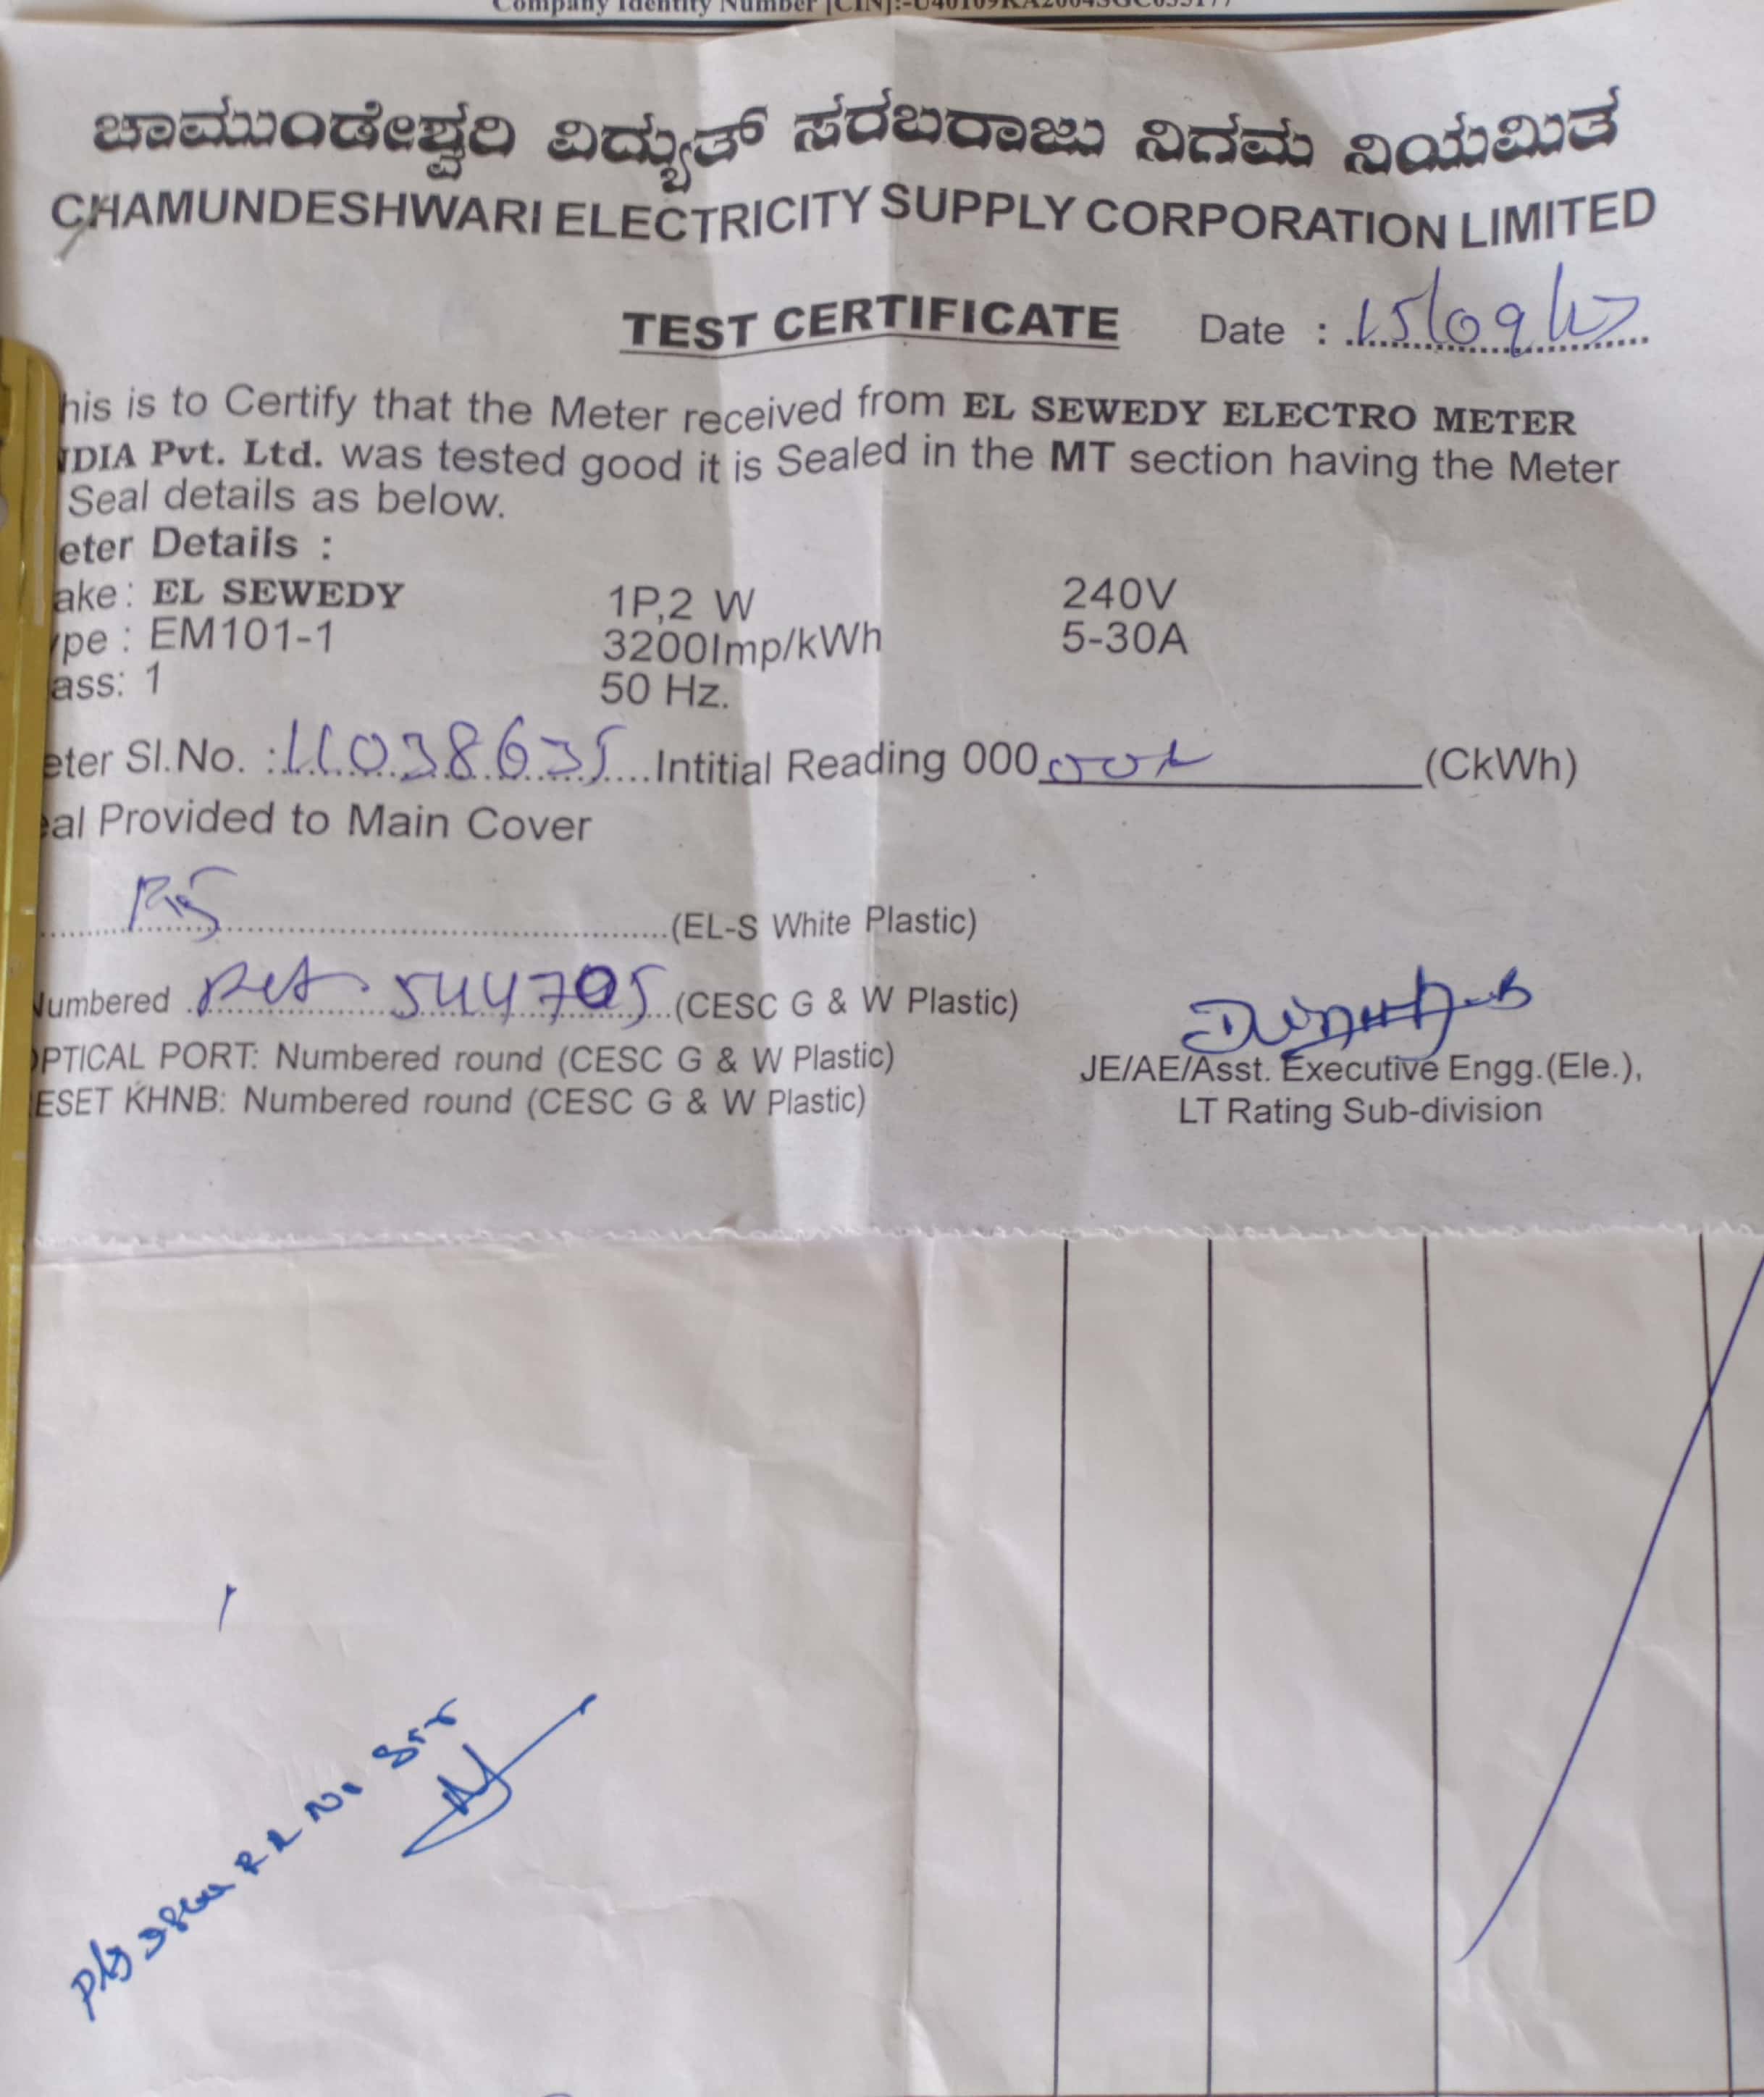 Company Identity Number [CIN]:-U40109KA2004SGC035177
ಚಾಮುಂಡೇಶ್ವರಿ ವಿದ್ಯುತ್ ಸರಬರಾಜು ನಿಗಮ ನಿಯಮಿತ
CHAMUNDESHWARI ELECTRICITY SUPPLY CORPORATION LIMITED
TEST CERTIFICATE Date : 15/09/17
his is to Certify that the Meter received from EL SEWEDY ELECTRO METER
NDIA Pvt. Ltd. was tested good it is Sealed in the MT section having the Meter
Seal details as below.
eter Details :
ake: EL SEWEDY 1P,2 W 240V
ype : EM101-1 3200Imp/kWh 5-30A
ass: 1 50 Hz.
eter Sl.No. : 11038635 Intitial Reading 000 (CkWh)
eal Provided to Main Cover
(EL-S White Plastic)
Numbered 544705 (CESC G & W Plastic)
OPTICAL PORT: Numbered round (CESC G & W Plastic)
ESET KHNB: Numbered round (CESC G & W Plastic)
JE/AE/Asst. Executive Engg.(Ele.),
LT Rating Sub-division
RR No Sir